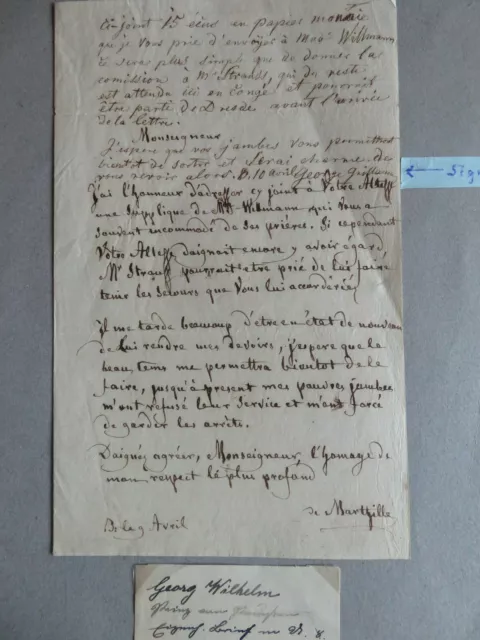 Ci-joint 15 écus en papier monnaie
que je vous prie d'envoyer à Mad: Willmann,
ce sera plus simple que de donner la
comission à Mr Strauss, qui du reste
est attendu ici en congé et pourrait
être parti de Dresde avant l'arrivée
de la lettre.
Monseigneur
J'espère que vos jambes vous permettront
bientôt de sortir et serai charmé de
vous revoir alors. B. 10 avril George
J'ai l'honneur d'adresser cy joint à Votre Altesse
une supplique de Willmann, qui Vous a
souvent incommodé de ses prières. Si cependant
Votre Altesse daignait encore y avoir égard
Mr Strauss pourrait etre prié de lui faire
tenir les secours que Vous lui accorderiés
Il me tarde beaucoup d'etre en état de nouveau
de Lui rendre mes devoirs, j'espere que le
beau tems me permettra bientot de le
faire, jusqu'à présent mes pauvres jambes
m'ont refusé leur service et m'ont forcé
de garder les arrêts.
Daignés agréer, Monseigneur, l'homage de
mon respect le plus profond
de Martville
B. le 9 Avril
Georg Wilhelm
Prinz
Eigenh. Brief m. U. 8.